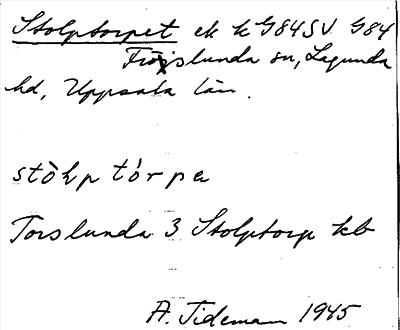 Stolptorpet ek k G84SV G84
Fröslunda sn, Lagunda
hd, Uppsala län.
stòlp tórpe
Torslunda 3 Stolptorp kb
A. Tideman 1945